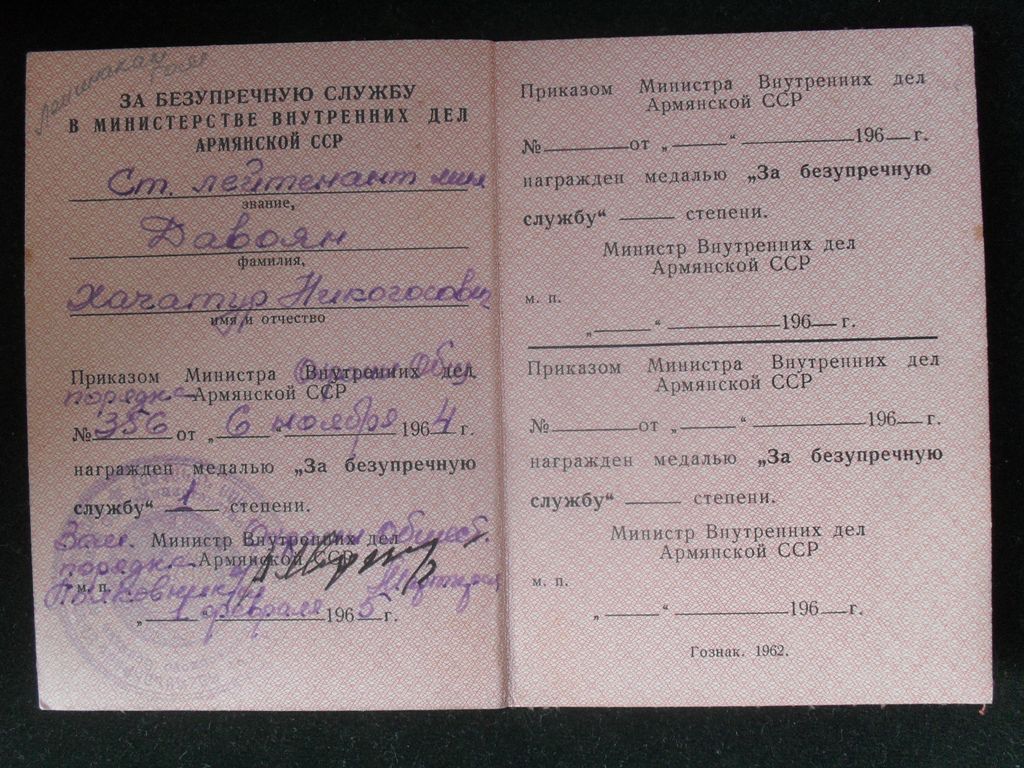 Ленинакан
ЗА БЕЗУПРЕЧНУЮ СЛУЖБУ
В МИНИСТЕРСТВЕ ВНУТРЕННИХ ДЕЛ
АРМЯНСКОЙ ССР
Ст. лейтенант
звание,
Давоян
фамилия,
Хачатур Никогосович
имя и отчество
Приказом Министра Внутренних дел Охраны Общ.
порядка Армянской ССР
№ 356 от „ 6 “ ноября 1964 г.
награжден медалью „За безупречную
службу“ 1 степени.
Зам. Министр Внутренних дел Охраны Общест.
порядка Армянской ССР
м. п. Полковник
„ 1 “ февраля 1965 г.
Приказом Министра Внутренних дел
Армянской ССР
№ от „ “ 196 г.
награжден медалью „За безупречную
службу“ степени.
Министр Внутренних дел
Армянской ССР
м. п.
„ “ 196 г.
Приказом Министра Внутренних дел
Армянской ССР
№ от „ “ 196 г.
награжден медалью „За безупречную
службу“ степени.
Министр Внутренних дел
Армянской ССР
м. п.
„ “ 196 г.
Гознак. 1962.